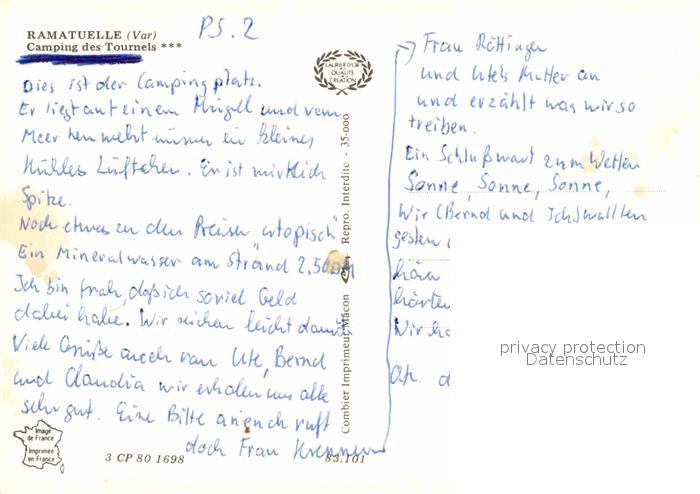 RAMATUELLE (Var)
Camping des Tournels ***
P.S. 2
Dies ist der Campingplatz.
Er liegt auf einem Hügel und vom
Meer her weht immer ein kleines
kühles Lüftchen. Er ist wirklich
Spitze.
Noch etwas zu den Preisen utopisch"
Ein Mineralwasser am Strand 2.50 DM
Ich bin froh, daß ich soviel Geld
dabei habe. Wir reichen leicht damit.
Viele Grüße auch von Ute, Bernd
und Claudia wir erholen uns alle
sehr gut. Eine Bitte an euch ruft
doch Frau
Image
de France
Imprimée
en France
3 CP 80 1698
83.101
LAURIER D'OR
DE LA
QUALITÉ
CRÉATION
Combier Imprimeur Mâcon
Repro. Interdite - 35-000
→ Frau Röttinger
und Ute's Mutter an
und erzählt was wir so
treiben.
Ein Schlußwort zum Wetter
Sonne, Sonne, Sonne,
Wir (Bernd und Ich) wollten
gestern
Wir
privacy protection
Datenschutz